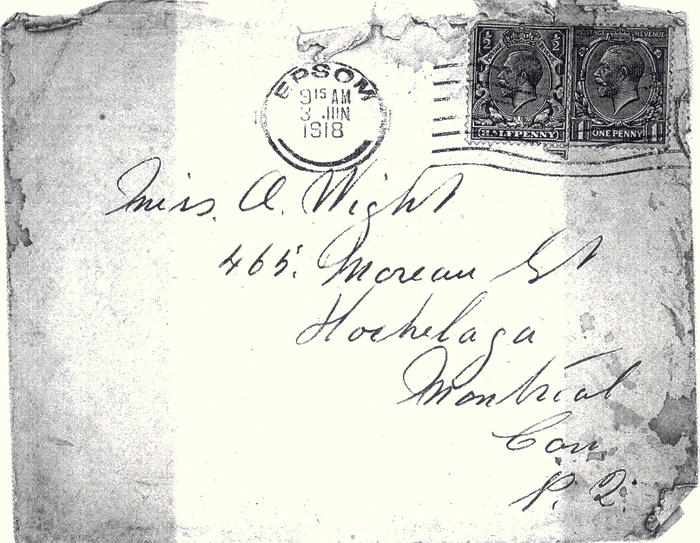 EPSOM
9 15 AM
3 JUN
1918
1/2 1/2
HALFPENNY
POSTAGE REVENUE
ONE PENNY
Miss. A. Wight
465. Moreau St
Hochelaga
Montréal
Can
P. Q.